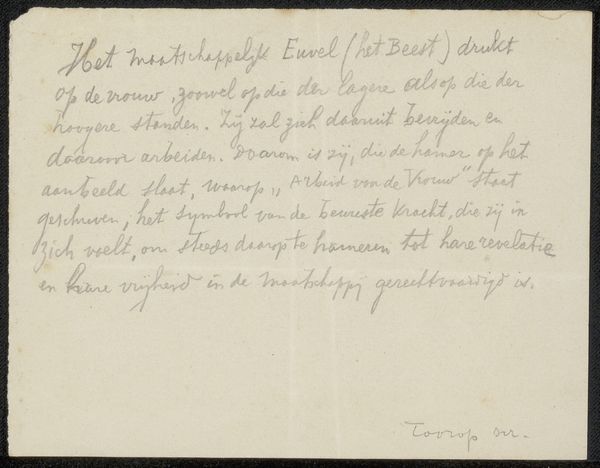 Het Maatschappelijk Euvel (het Beest) drukt
op de vrouw, zoowel op die der lagere als op die der
hoogere standen. Zij zal zich daaruit bevrijden en
daarvoor arbeiden. Daarom is zij, die de hamer op het
aanbeeld slaat, waarop „Arbeid van de Vrouw" staat
geschreven, het symbool van de bewuste Kracht, die zij in
zich voelt, om steeds daarop te hameren tot hare revelatie
en hare vrijheid in de Maatschappij gerechtvaardigd is.
Toorop